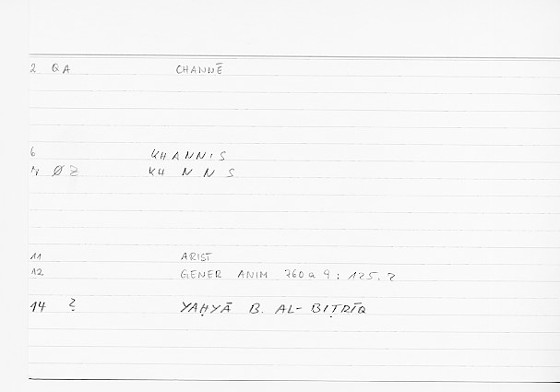 2 QA CHANNĒ
6 KHANNIS
7 Ø Z KH N N S
11 ARIST
12 GENER ANIM 760 a 9 : 125.2
14 ? YAḤYĀ B. AL-BIṬRĪQ